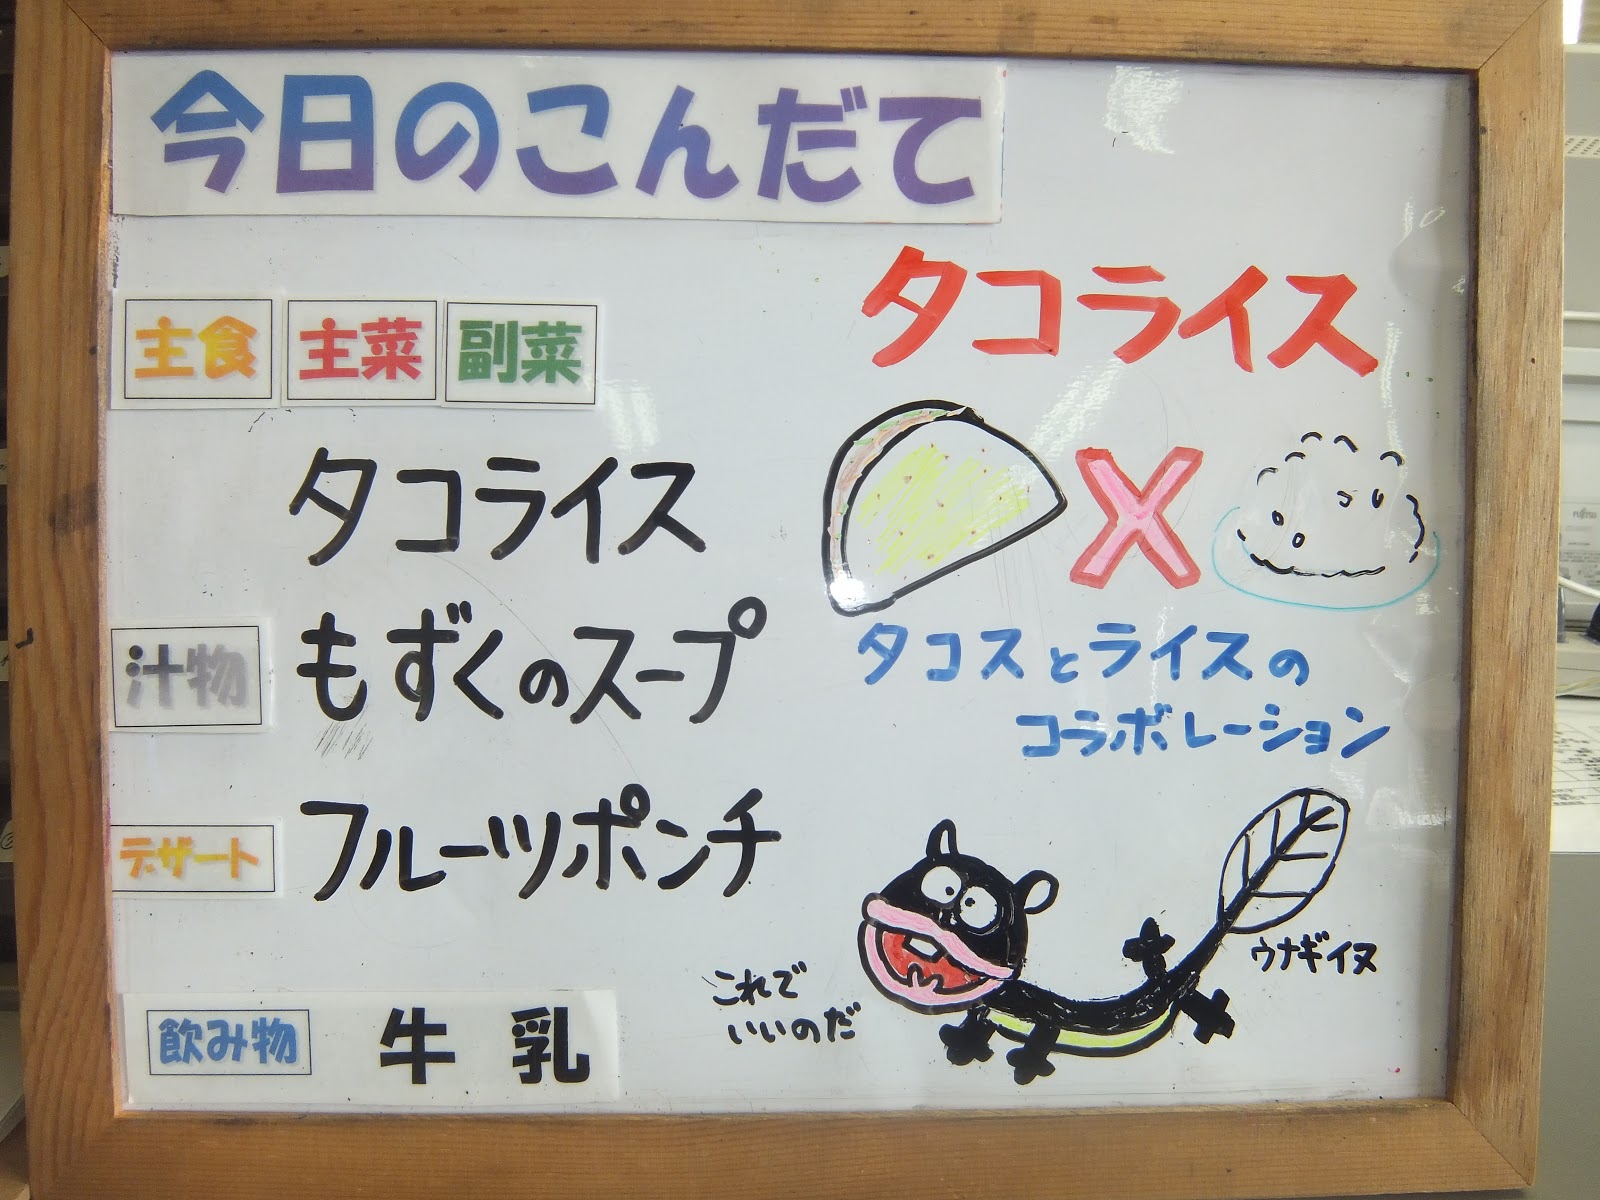 今日のこんだて
主食 主菜 副菜
タコライス
汁物 もずくのスープ
デザート フルーツポンチ
飲み物 牛乳
タコライス
X
タコスとライスの
コラボレーション
ウナギイヌ
これで
いいのだ
FUJITSU